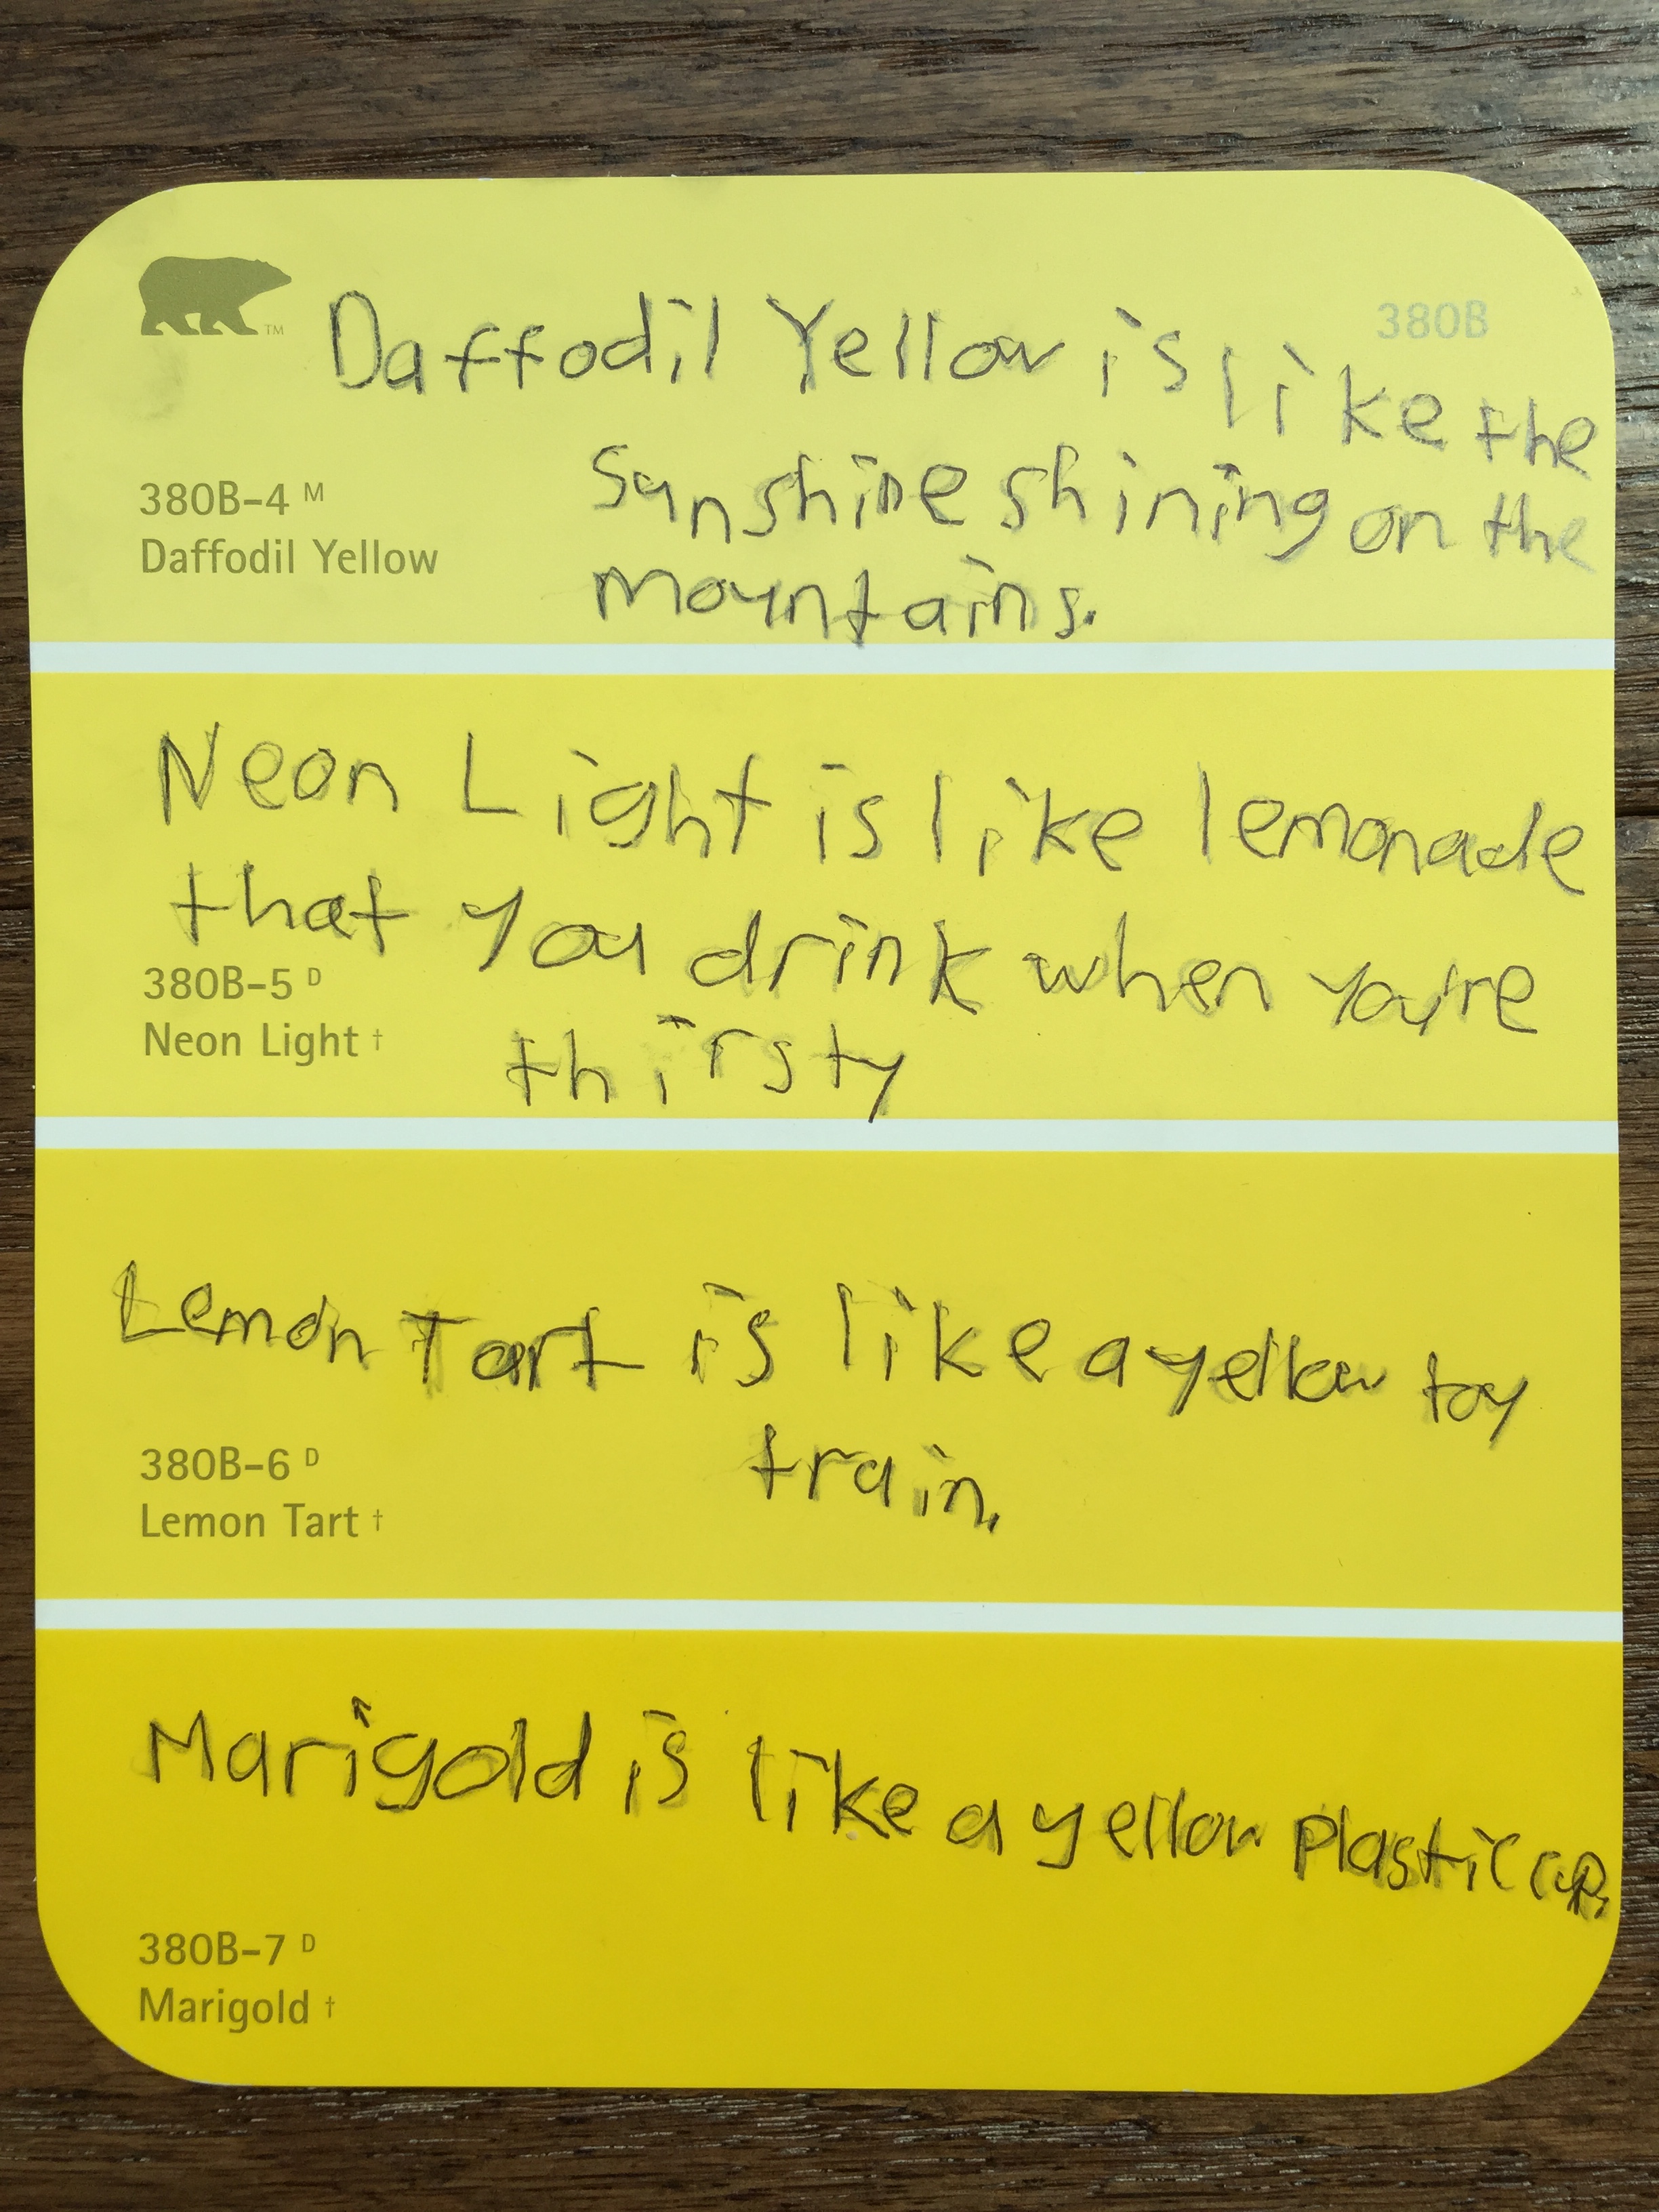 TM
380B
Daffodil Yellow is like the
sunshine shining on the
mountains.
380B-4 M
Daffodil Yellow
Neon Light is like lemonade
that you drink when you're
thirsty
380B-5 D
Neon Light †
Lemon Tart is like a yellow toy
train.
380B-6 D
Lemon Tart †
Marigold is like a yellow plastic cup.
380B-7 D
Marigold †